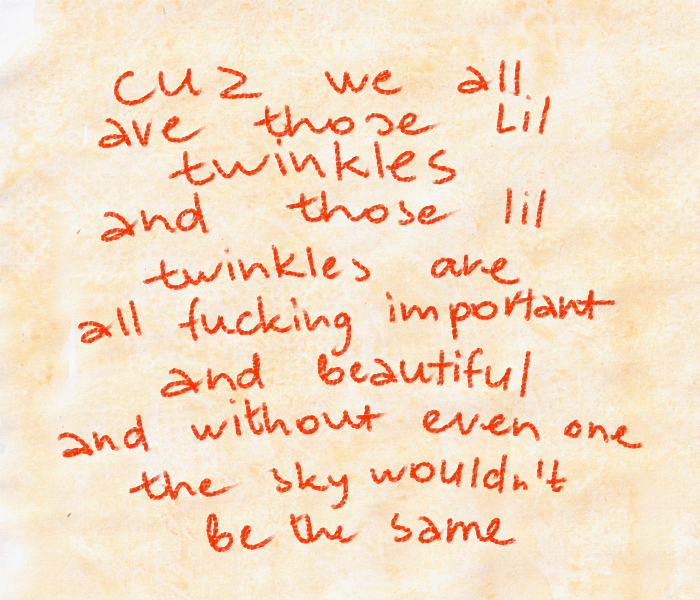 cuz we all
are those Lil
twinkles
and those lil
twinkles are
all fucking important
and beautiful
and without even one
the sky wouldn't
be the same